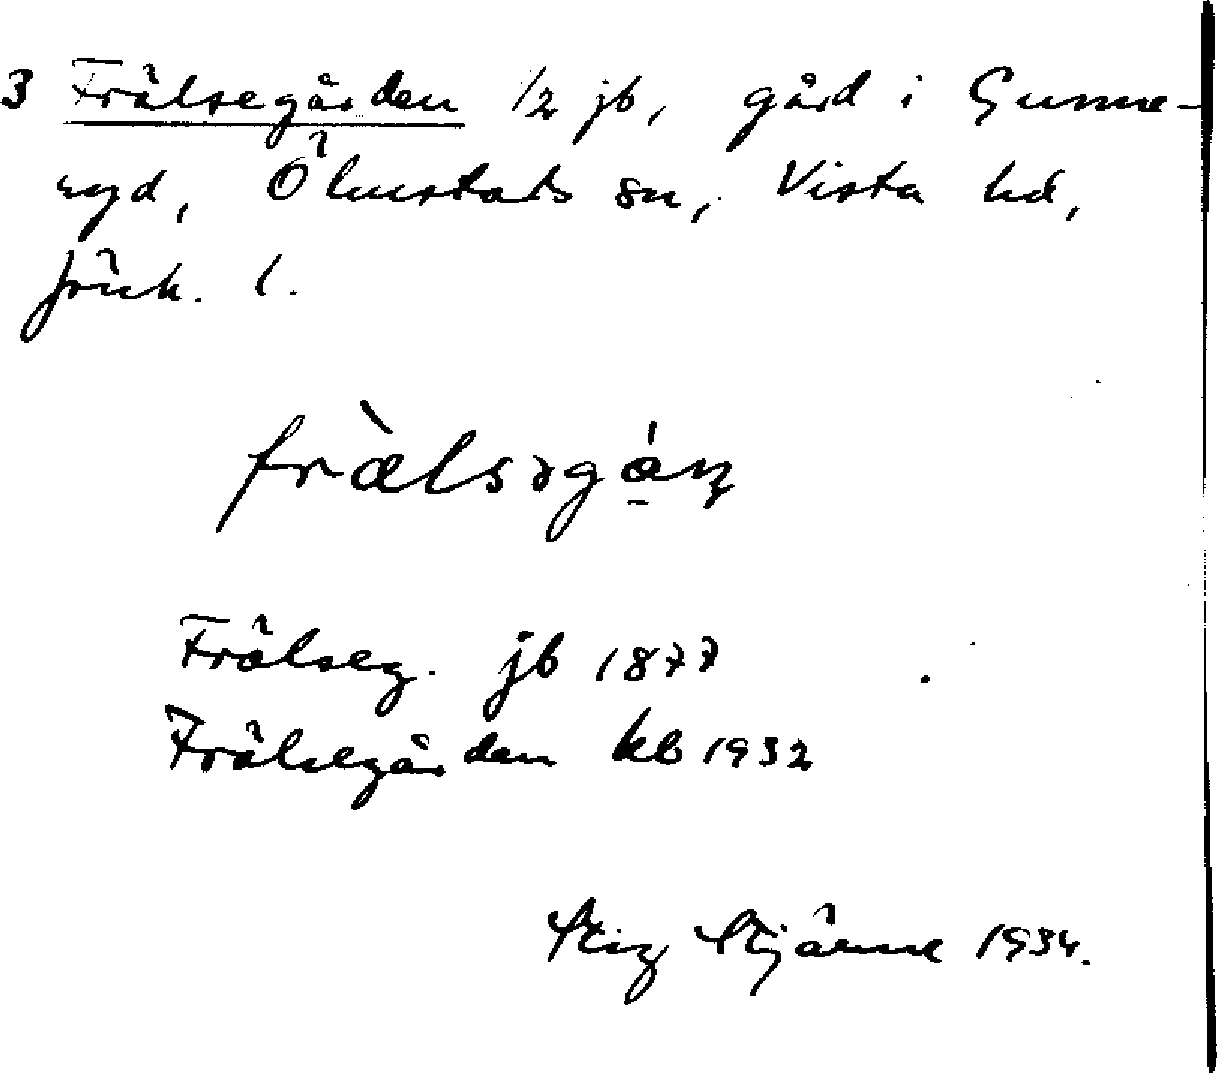 3 Frälsegården 1/2 jb, gård i Gunne-
ryd, Ölmstads sn, Vista hd,
Jönk. l.
fràlsəgánɳ
Frälseg. jb 1877
Frälsegården kb 1932
Stig Stjärne 1934.